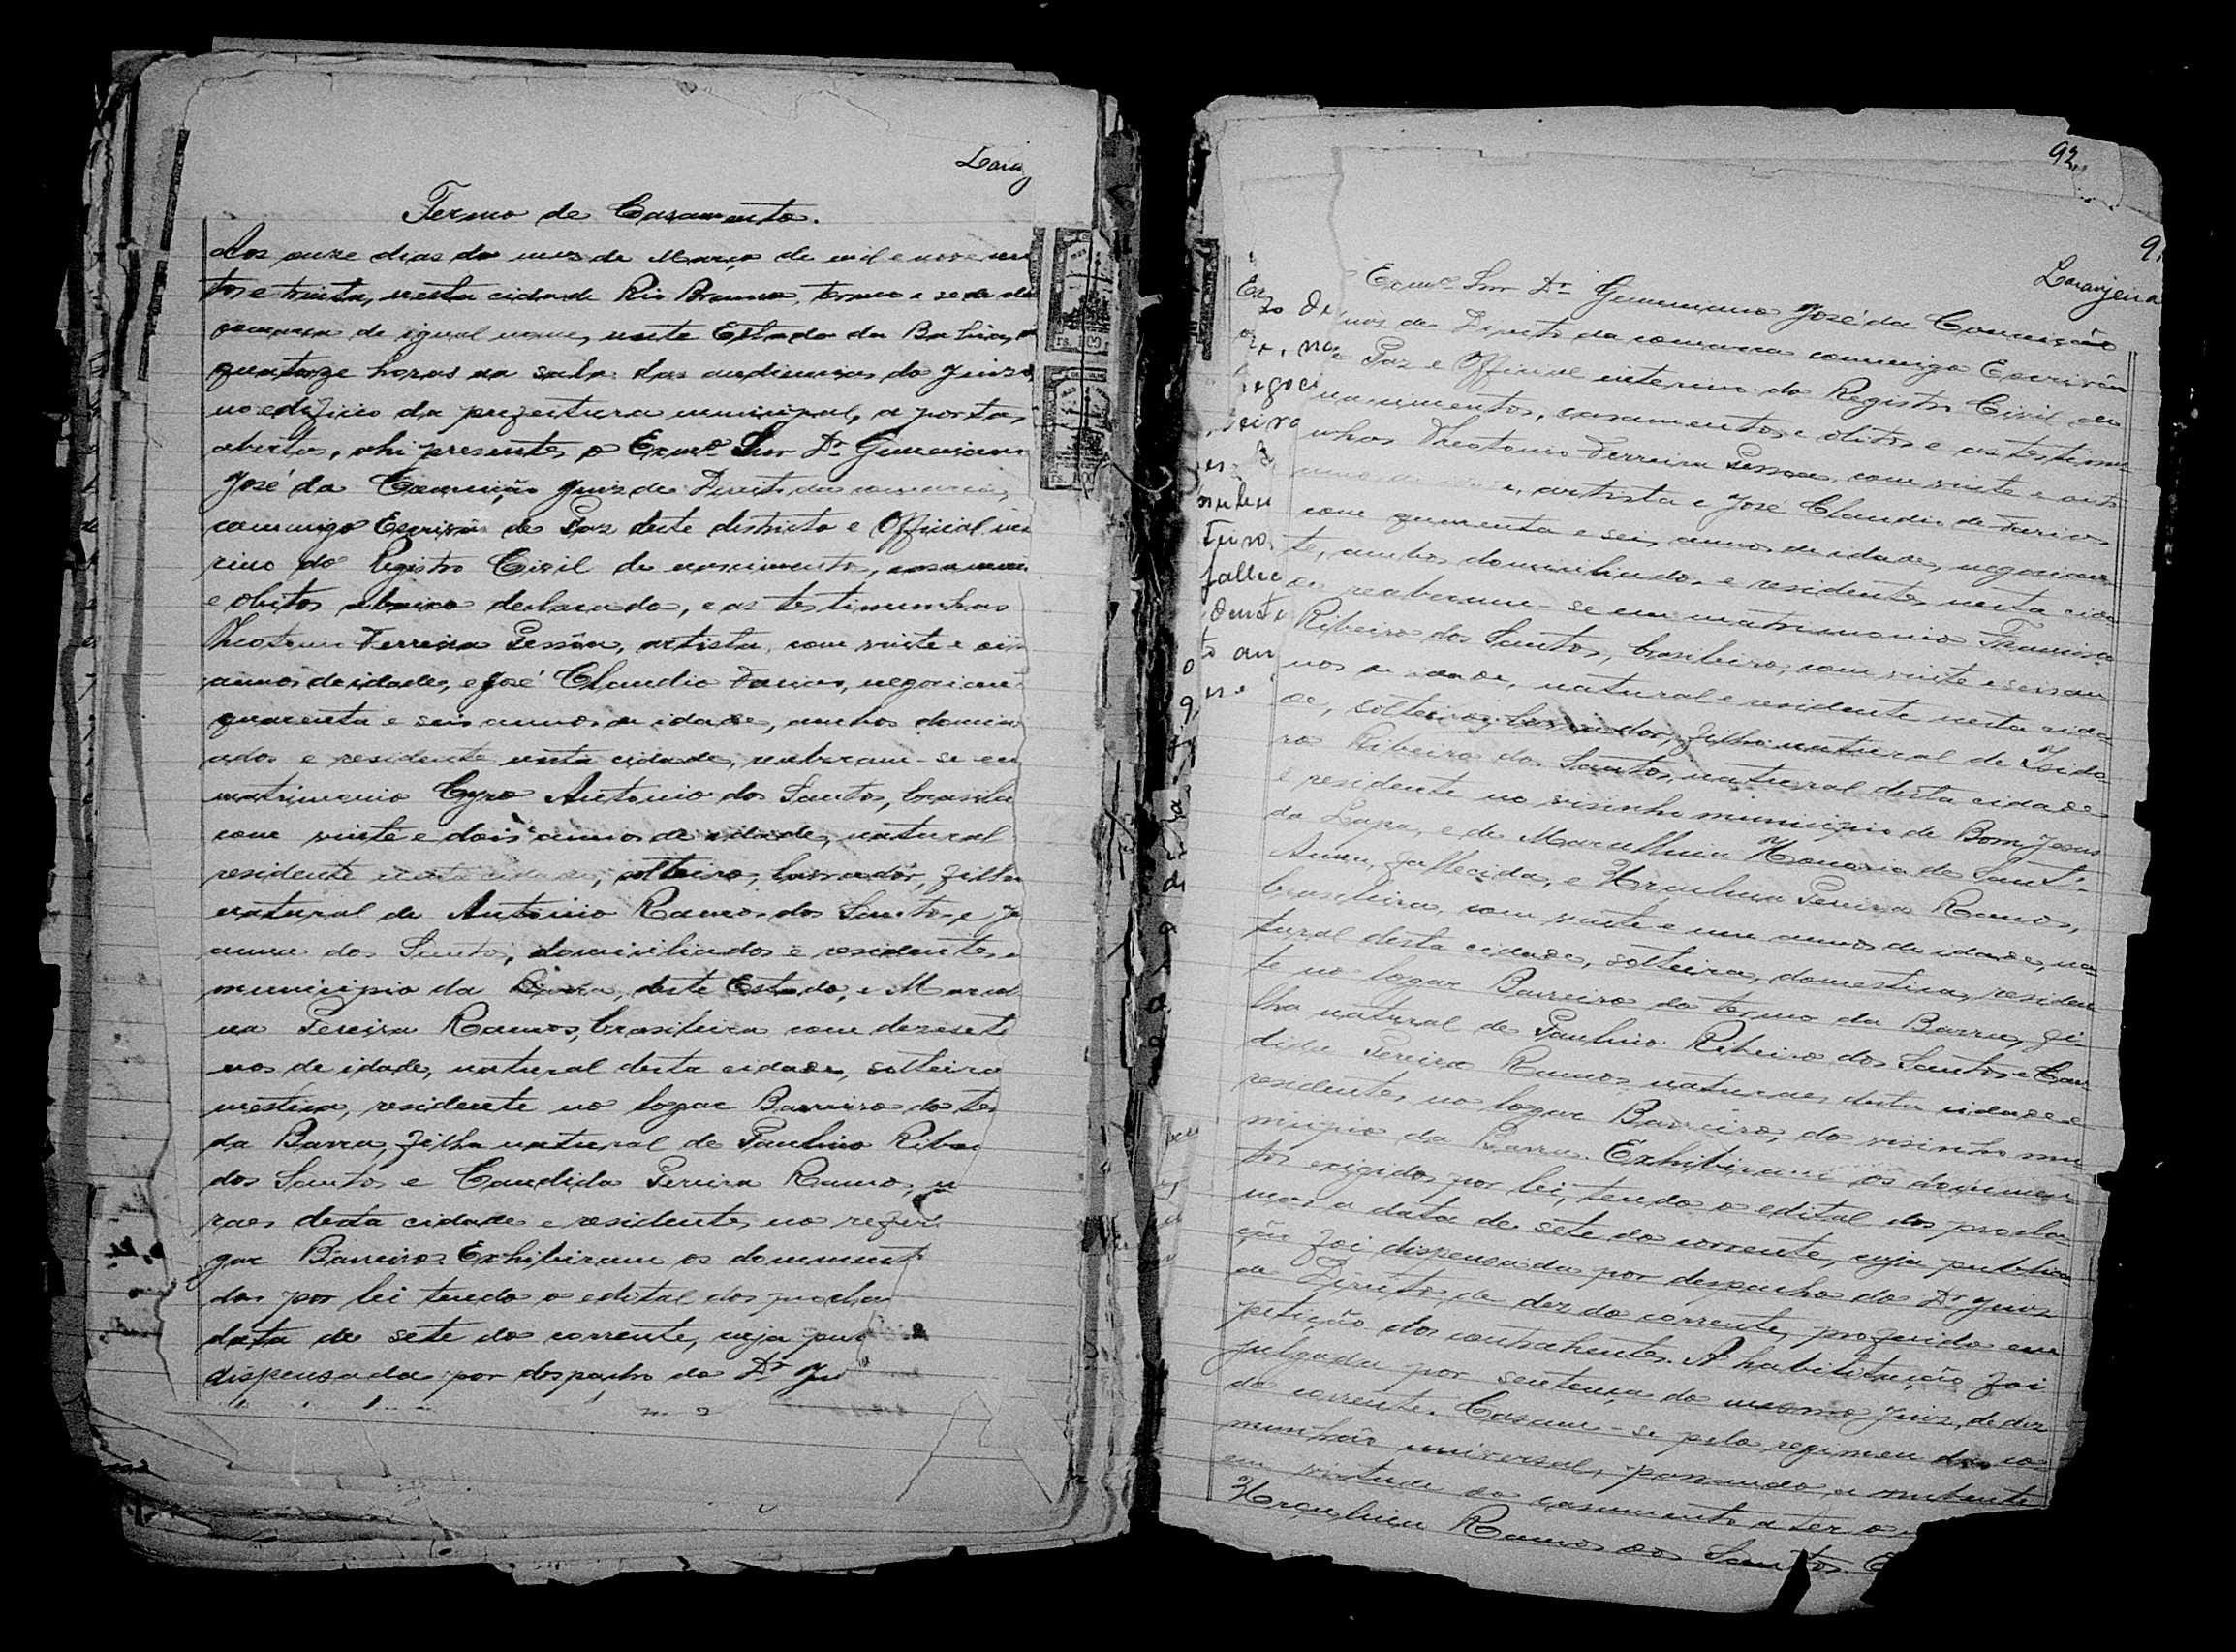 Laraj
Termo de Casamento.
Aos onze dias do mez de Março de mil e novecen
tos e trinta, nesta cidade Rio Branco, termo e sede da
comarca de igual nome, neste Estado da Bahia, as
quatorze horas na sala das audiencias do Juizo
no edificio da prefeitura municipal, a portas
abertas, ahi presentes o Exmº Snr Dr Geminiano
José da Conceição Juiz de Direito da comarca,
commigo Escrivão de Paz deste districto e Official in
rino do Registro Civil de nascimentos, casamen
e obitos abaixo declarado, e as testimunhas
Theotonio Ferreira Pessôa, artista, com vinte e oit
annos de idade, e José Claudio Farias, negocian
quarenta e seis annos de idade, ambos domici
ados e residente nesta cidade, receberam-se em
matrimonio Cyro Antonio dos Santos, brasilei
com vinte e dois annos de idade, natural
residente nesta cidade, solteiro, lavrador, filho
natural de Antonio Ramos dos Santos, e J
anna dos Santos, domiciliados e residentes
municipio da Barra, deste Estado, e Marcel
na Pereira Ramos, brasileira com dezesete
nos de idade, natural desta cidade, solteira
mestica, residente no logar Barreiro do ter
da Barra, filha natural de Paulino Ribei
dos Santos e Candida Pereira Ramos, n
raes desta cidade e residentes no referi
gar Barreiro. Exhibiram os document
dos por lei tendo o edital dos procla
data de sete do corrente, cuja pub
dispensada por despacho do Dr Ju
92
9
Laranjeira
Exmº Snr Dr Geminiano José da Conceição
Juiz de Direito da comarca commigo Escrivão
de Paz e Official interino do Registro Civil de
nascimentos, casamentos e obitos e as testimu
nhas Theotonio Ferreira Pessoa, com vinte e oito
annos de idade, artista e José Claudio de Farias
com quarenta e seis annos de idade, negocian
te, ambos domiciliados e residentes nesta cida
de receberam-se em matrimonio Francisco
Ribeiro dos Santos, brasileiro, com vinte e seis an
nos de idade, natural e residente nesta cida
de, solteiro, lavrador, filho natural de Isido
ro Ribeiro dos Santos, natural desta cidade
e residente no visinho municipio de Bom Jesus
da Lapa, e de Marcellina Honoria de Sant'
Anna, fallecida, e Herculina Pereira Ramos,
brasileira, com vinte e um annos de idade, na
tural desta cidade, solteira, domestica, residen
te no logar Barreiro do termo da Barra, fi
lha natural de Paulino Ribeiro dos Santos e Can
dida Pereira Ramos, naturaes desta cidade e
residentes no logar Barreiro, do visinho mu
nicipio da Barra. Exhibiram os documen
tos exigidos por lei, tendo o edital dos procla
mas a data de sete do corrente, cuja publica
ção foi dispensada por despacho do Dr Juiz
de Direito, de dez do corrente, proferido em
petição dos contrahentes. A habilitação foi
julgada por sentença do mesmo Juiz, de dez
do corrente. Casam-se pelo regimen da co
munhão universal, passando a nubente
em virtude do casamento a ter o
Herculina Ramos dos Santos. E